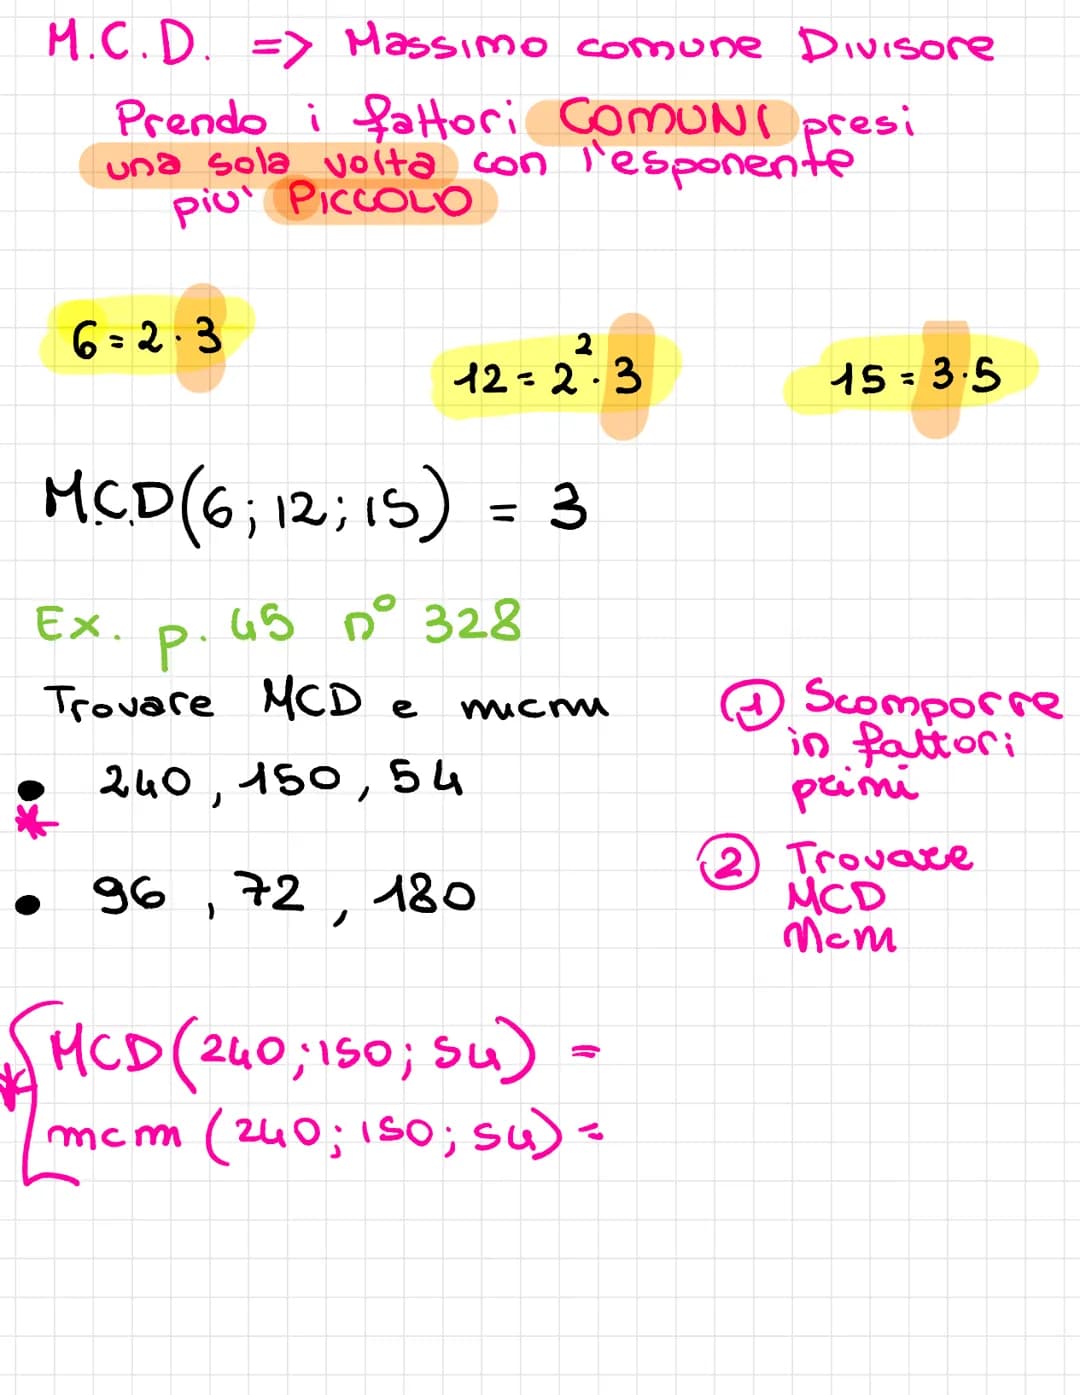 M.C.D. => Massimo comune Divisore
Prendo i fattori COMUNI presi
una sola volta con l'esponente
piu' PICCOLO
6 = 2 · 3
12 = 2² · 3
15 = 3 · 5
M.C.D(6; 12; 15) = 3
Ex. p. 45 n° 328
Trovare MCD e mcm
• 240, 150, 54
*
• 96, 72, 180
① Scomporre
in fattori
primi
② Trovare
MCD
mcm
* MCD(240; 150; 54) =
mcm (240; 150; 54) =